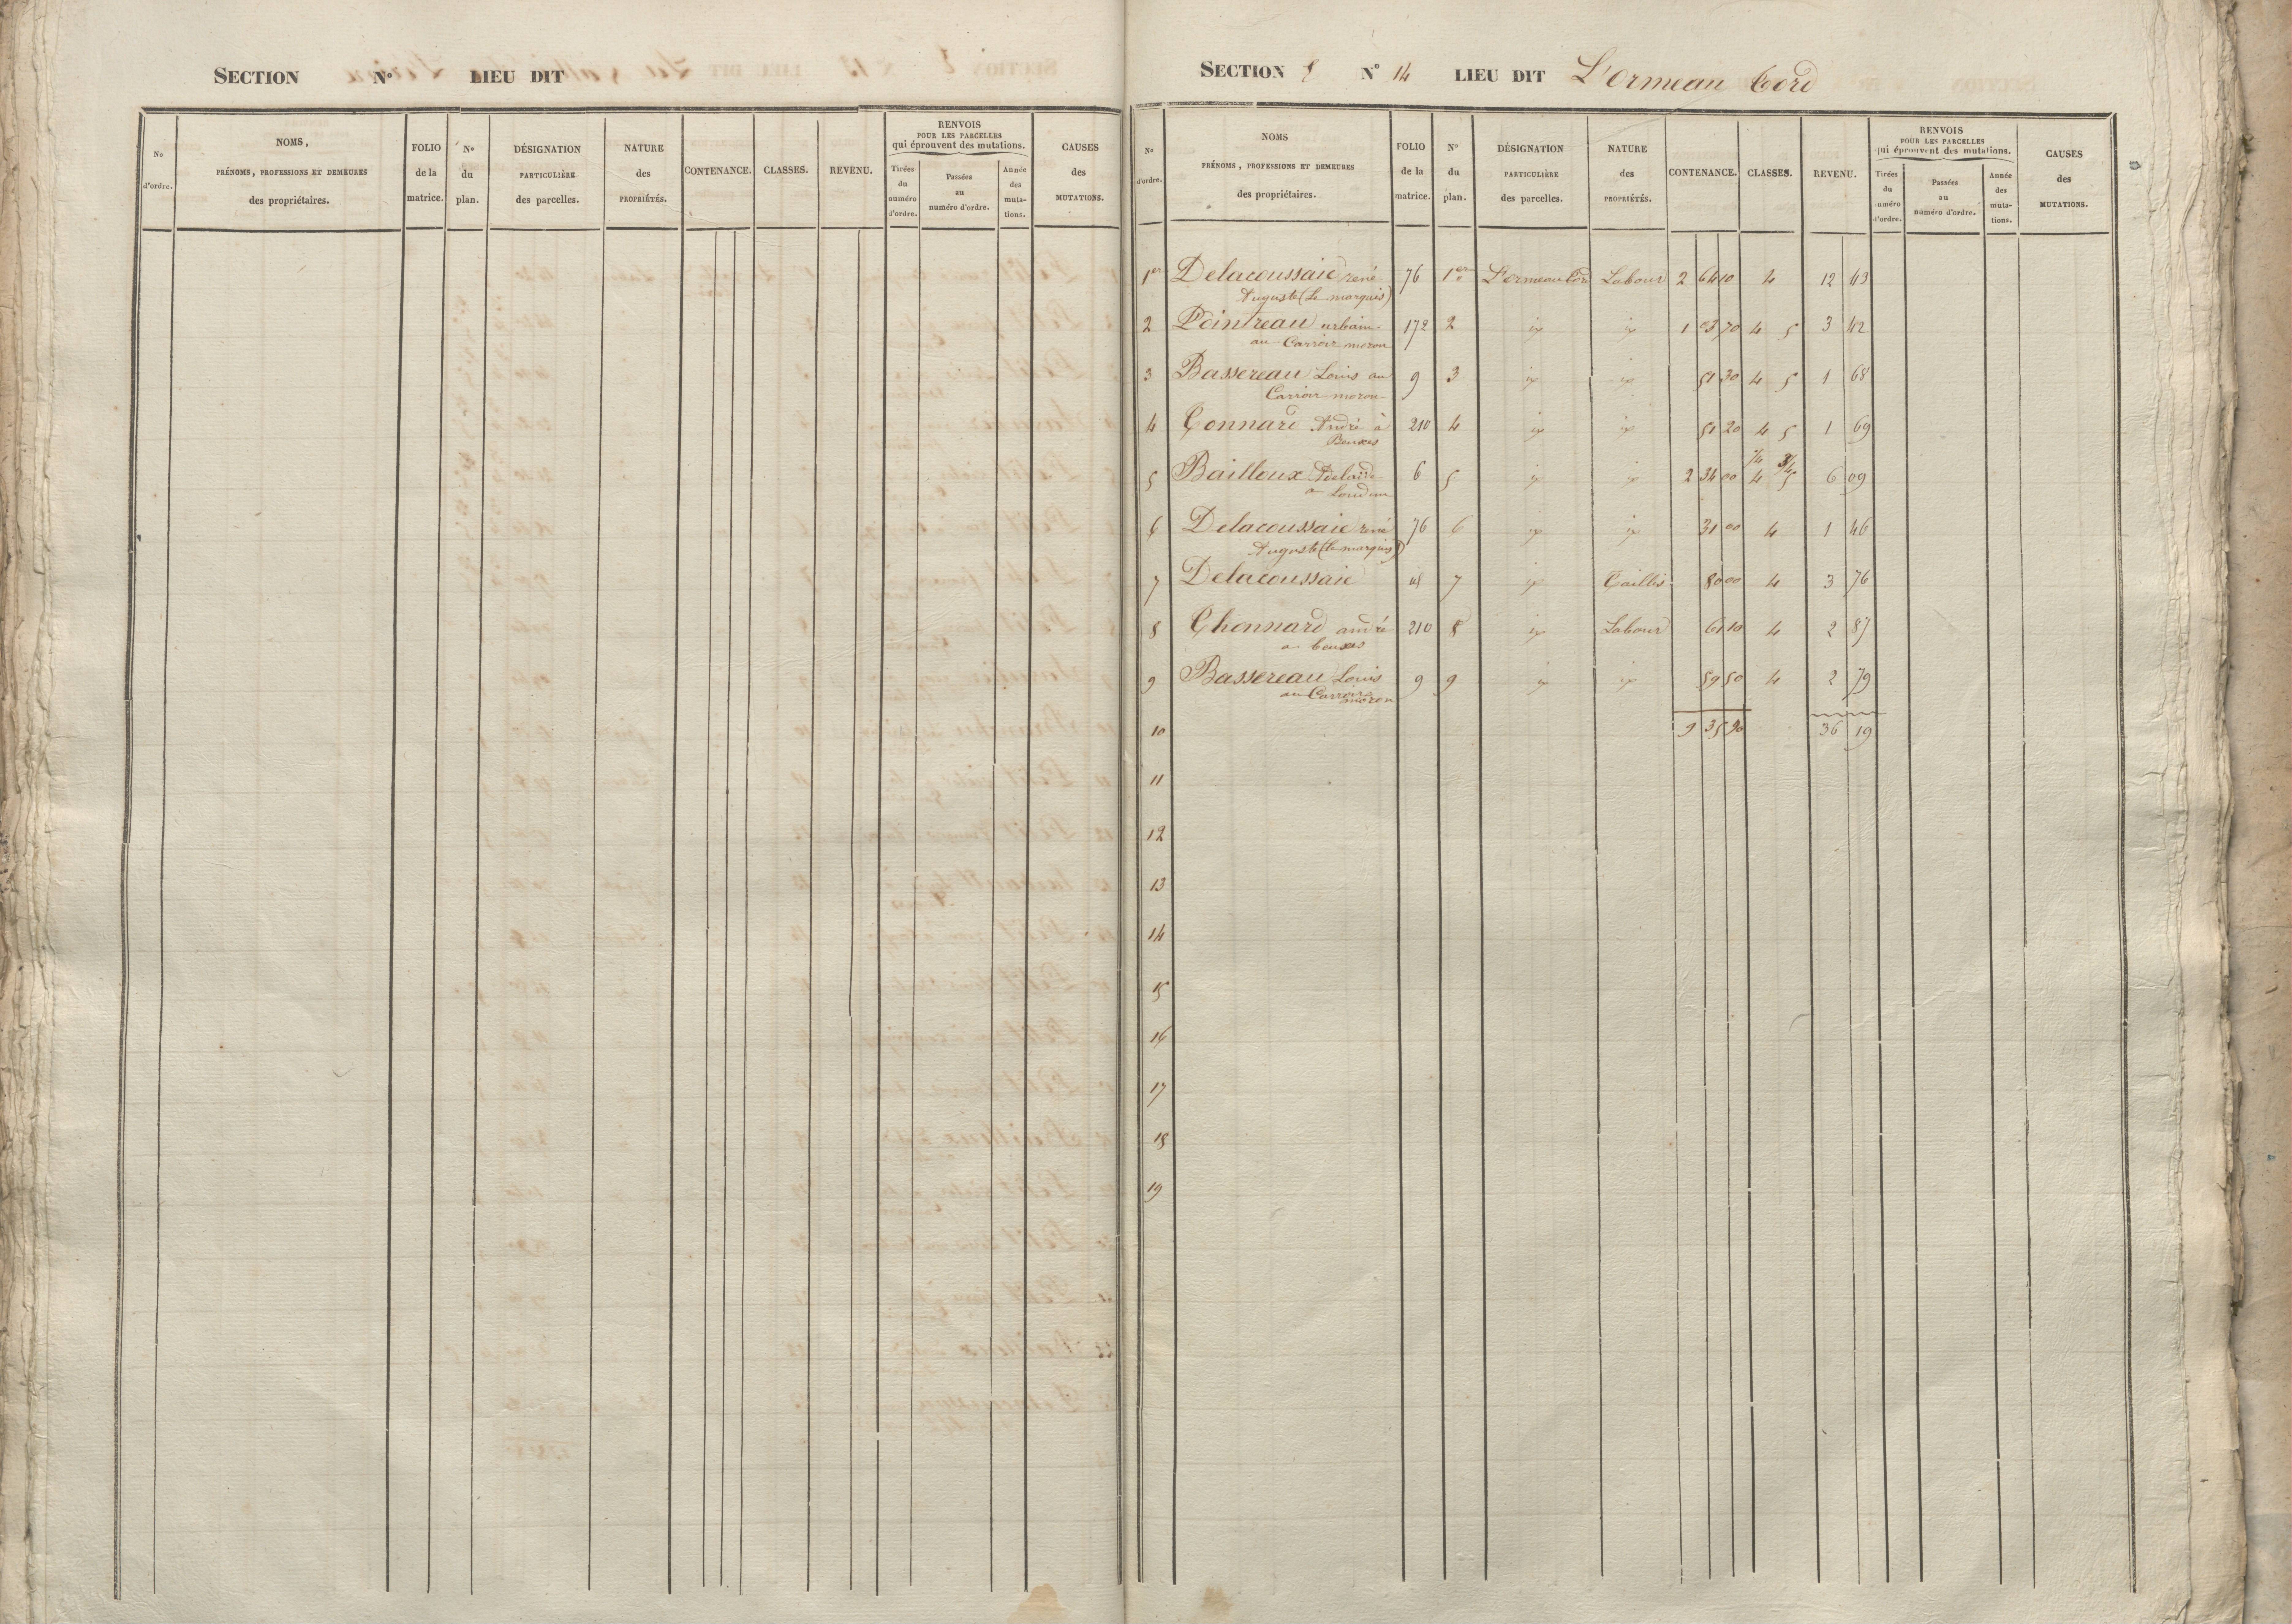 SECTION N° LIEU DIT
N° d'ordre.
NOMS, PRÉNOMS, PROFESSIONS ET DEMEURES des propriétaires.
FOLIO de la matrice.
N° du plan.
DÉSIGNATION PARTICULIÈRE des parcelles.
NATURE des PROPRIÉTÉS.
CONTENANCE.
CLASSES.
REVENU.
RENVOIS POUR LES PARCELLES qui éprouvent des mutations.
Tirées du numéro d'ordre.
Passées au numéro d'ordre.
Année des mutations.
CAUSES des MUTATIONS.
SECTION E N° 14 LIEU DIT L'Ormeau Cord
N° d'ordre.
NOMS PRÉNOMS, PROFESSIONS ET DEMEURES des propriétaires.
FOLIO de la matrice.
N° du plan.
DÉSIGNATION PARTICULIÈRE des parcelles.
NATURE des PROPRIÉTÉS.
CONTENANCE.
CLASSES.
REVENU.
RENVOIS POUR LES PARCELLES qui éprouvent des mutations.
Tirées du numéro d'ordre.
Passées au numéro d'ordre.
Année des mutations.
CAUSES des MUTATIONS.
1er Delacoussaie rené 76 1er L'ormeau Cord Labour 2 64 10 4 12 43
Auguste (Le marquis)
2 Pointreau urbain 172 2 id id 1 03 70 4 5 3 42
au Carroir moron
3 Bassereau Louis au 9 3 id id 51 30 4 5 1 68
Carroir moron
4 Gonnard André à 210 4 id id 51 20 4 5 1 69
Beuxes
5 Bailloux Adelaïde 6 5 id id 2 34 00 4 5 6 09
a Loudun
6 Delacoussaie rené 76 6 id id 31 00 4 1 46
Auguste (le marquis)
7 Delacoussaie id 7 id Taillis 80 00 4 3 76
8 Ghonnard andré 210 8 id Labour 61 10 4 2 87
a beuxes
9 Bassereau Louis 9 9 id id 59 50 4 2 79
au Carroir moron
10 9 35 90 36 19
11
12
13
14
15
16
17
18
19